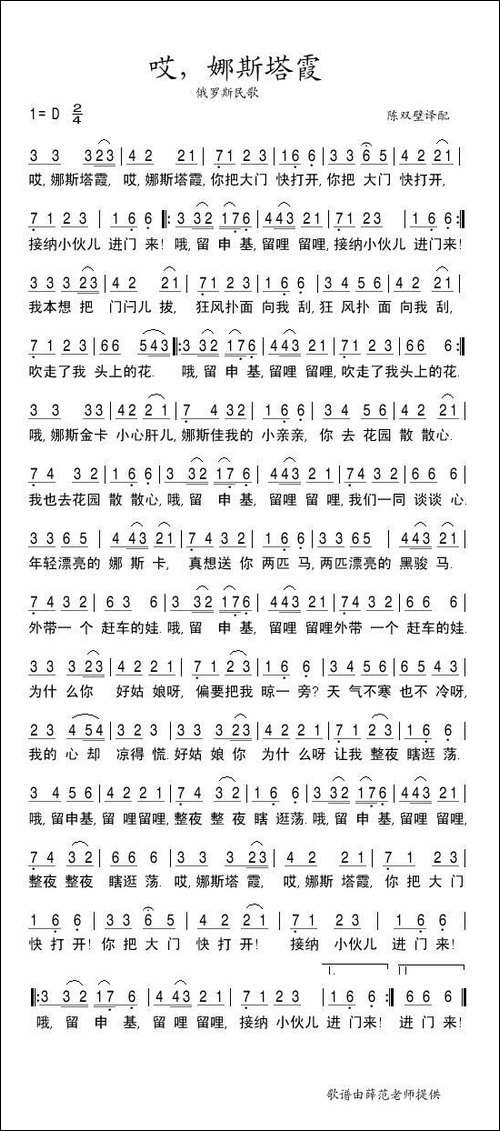 哎，娜斯塔霞
俄罗斯民歌
1=D 2/4
陈双壁译配
3 3 323|42 21|7123|166|3356|42 21|
哎,娜斯塔霞, 哎,娜斯塔霞,你把大门 快打开,你把 大门 快打开,
7123|166‖:3321176|44321|7123|166:‖
接纳小伙儿 进门 来! 哦,留 申 基,留哩 留哩,接纳小伙儿进门来!
33323|42 21|7123|166|3456|4221|
我本想 把 门闩儿 拔, 狂风扑面 向我 刮,狂 风扑 面 向我 刮,
7123|66 543‖:3321176|44321|7123|66 6:‖
吹走了我 头上的花. 哦,留 申 基,留哩 留哩,吹走了我头上的花.
3323|4221|7123|166|3456|4221|
哦,娜斯金卡 小心肝儿,娜斯佳我的 小亲亲, 你 去 花园 散 散心.
74 32|166|3321176|44321|7432|166|
我也去花园 散 散心,哦,留 申 基, 留哩 留 哩,我们一同 谈谈 心.
3 3 6 5|4 43 21|7 4 32|1 6 6|3365|44321|
年轻漂亮的 娜 斯 卡, 真想送 你 两匹 马,两匹漂亮的 黑骏 马.
7432|63 6|3321176|44321|7432|66 6|
外带一 个 赶车的娃.哦,留 申 基, 留哩 留哩外带 一个 赶车的娃.
33 323|4221|7123|166|3356|4221|
为什 么你 好姑 娘呀, 偏要把我 晾一 旁? 天 气不寒 也不 冷呀,
23 454|223|3356|4221|7123|166|
我的 心 却 凉得 慌.好姑 娘你 为什 么呀 让我 整夜 瞎逛 荡.
3456|4221|7432|166|3321176|44321|
哦,留申基,留 哩留哩,整夜 整 夜 瞎 逛荡.哦,留 申 基,留哩 留哩,
74 32|66 6|33 323|42 21|7123|
整夜 整夜 瞎逛 荡. 哎,娜斯塔 霞, 哎,娜斯 塔霞, 你 把 大门
166|3356|42 21|7123|166|
快打开! 你 把 大 门 快 打 开! 接纳 小伙儿 进 门 来!
‖:33 3217 6|4 43 21|7123|166:‖66 6‖
哦, 留 申 基, 留哩 留哩, 接纳 小伙儿 进 门来! 进 门来!
歌谱由薛范老师提供